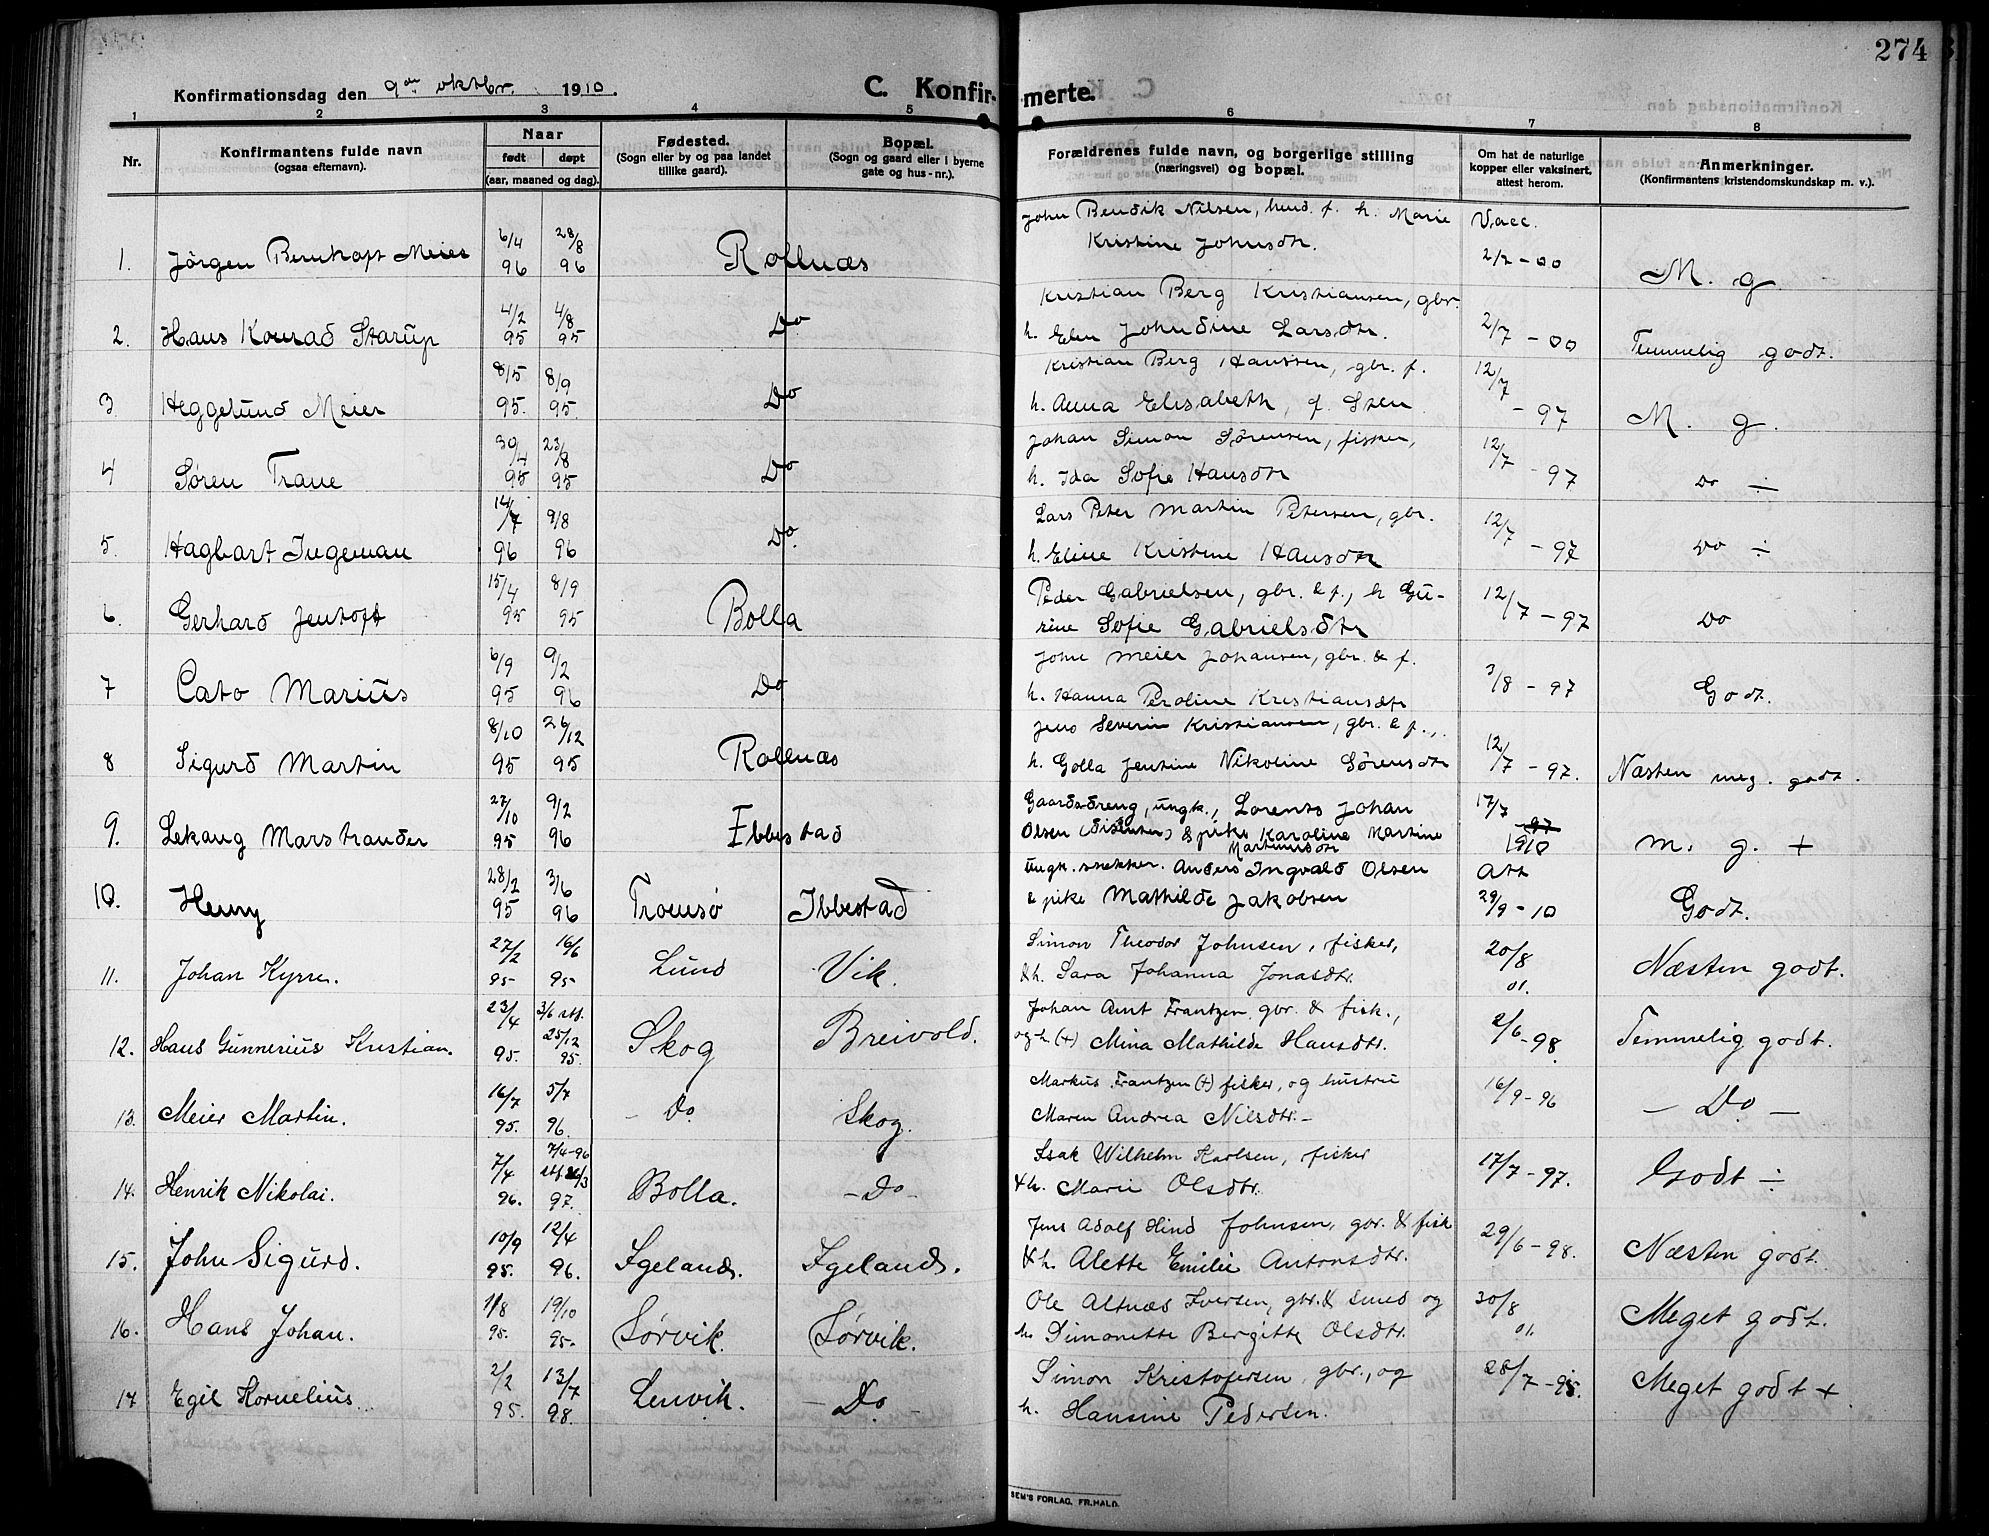 274
Konfirmationsdag den 9de oktbr. 1910.
C. Konfirmerte.
1 2 3 4 5 6 7 8
Nr.
Konfirmantens fulde navn
(ogsaa efternavn).
Naar
født døpt
(aar, maaned og dag).
Fødested.
(Sogn eller by og paa landet
tillike gaard).
Bopæl.
(Sogn og gaard eller i byerne
gate og hus-nr.).
Forældrenes fulde navn, og borgerlige stilling
(næringsvei) og bopæl.
Om hat de naturlige
kopper eller vaksinert,
attest herom.
Anmerkninger.
(Konfirmantens kristendomskundskap m. v.).
John Bendik Nilsen, hmd. f. h. Marie Vacc.
1. Jörgen Bernhoft Meier 6/4 96 28/8 96 Rollnæs Kristine Johnsdtr. 2/2-00 M. g
Kristian Berg Kristiansen, gbr.
2. Hans Konrad Starup 4/2 95 4/8 95 Do h. Elen Johndine Larsdtr. 2/7-00 Temmelig godt.
Kristian Berg Hanssen, gbr. f.
3 Heggelund Meier 8/5 95. 8/9 95. Do h. Anna Elisabeth, f. Sten 12/7-97 M. g.
Johan Simon Sørensen, fisker,
4 Søren Trane 30/4 95 23/8 95 Do h. Ida Sofie Hansdtr 12/7-97 Do ÷
Lars Peter Martin Petersen, gbr.
5. Hagbart Ingeman 14/7 96 9/8 96 Do. h. Eline Kristine Hansdtr 12/7-97 Do ÷
Peder Gabrielsen, gbr. & f., h Gu-
6. Gerhard Jentoft 15/4 95 8/9 95 Bolla rine Sofie Gabrielsdtr 12/7-97 Do
John Meier Johansen, gbr. & f.
7 Cato Marius 6/9 95 9/2 96 Do h. Hanna Peroline Kristiansdtr 3/8-97 Godt.
Jens Severin Kristiansen, gbr. & f.,
8 Sigurd Martin 8/10 95 26/12 95 Rollnæs h. Golla Jentine Nikoline Sørensdtr 12/7-97. Næsten meg. godt.
Gaardsdreng, ungk., Lorents Johan
9. Lekang Marstrander 27/10 95 9/2 96 Ibbestad Olsen (disenter) & pike Karoline Martine 17/7-97 1910 m. g. +
Martinusdtr
ungk. snekker. Anders Ingvald Olsen Att
10. Henry 28/2 95 3/6 96 Tromsø Ibbestad & pike Mathilde Jakobsen 29/9-10 Godt.
Simon Theodor Johnsen, fisker,
11. Johan Kyrre. 27/2 95- 16/6 95- Lund Vik. & h. Sara Johanna Jonasdtr. 20/8 01. Næsten godt.
Johan Arnt Frantzen, gbr. & fisk.,
12. Hans Gunnerius Kristian. 23/4 95. 3/6 stf. 25/12 95. Skog Breivold. og h. (+) Mina Mathilde Hansdtr. 2/6-98 Temmelig godt.
Markus Frantzen (+) fisker, og hustru
13. Meier Martin. 16/7 95. 5/7 96. - Do. Skog. Maren Andrea Nilsdtr.- 16/9-96 - Do -
Isak Wilhelm Karlsen, fisker
14. Henrik Nikolai. 7/4 96. 7/4-96 stf. 97. Bolla. - Do - & h. Marie Olsdtr. 17/7-97. Godt ÷
Jens Adolf Hind Johnsen, gbr. & fisk
15. John Sigurd. 10/9 95. 12/4 96. Igeland. Igeland. & h. Alette Emilie Antonsdtr. 29/6-98. Næsten godt.
Ole Altnæs Iversen, gbr. & smed og
16. Hans Johan. 1/8 95. 19/10 95- Sørvik. Sørvik. h. Simonette Bergitte Olsdtr. 30/8 01. Meget godt.
Simon Kristofersen, gbr., og
17 Egil Kornelius. 2/2 95. 13/7 98. Lenvik. - Do - h. Hansine Pedersen. 28/7-98. Meget godt +
SEM'S FORLAG, FR.HALD.